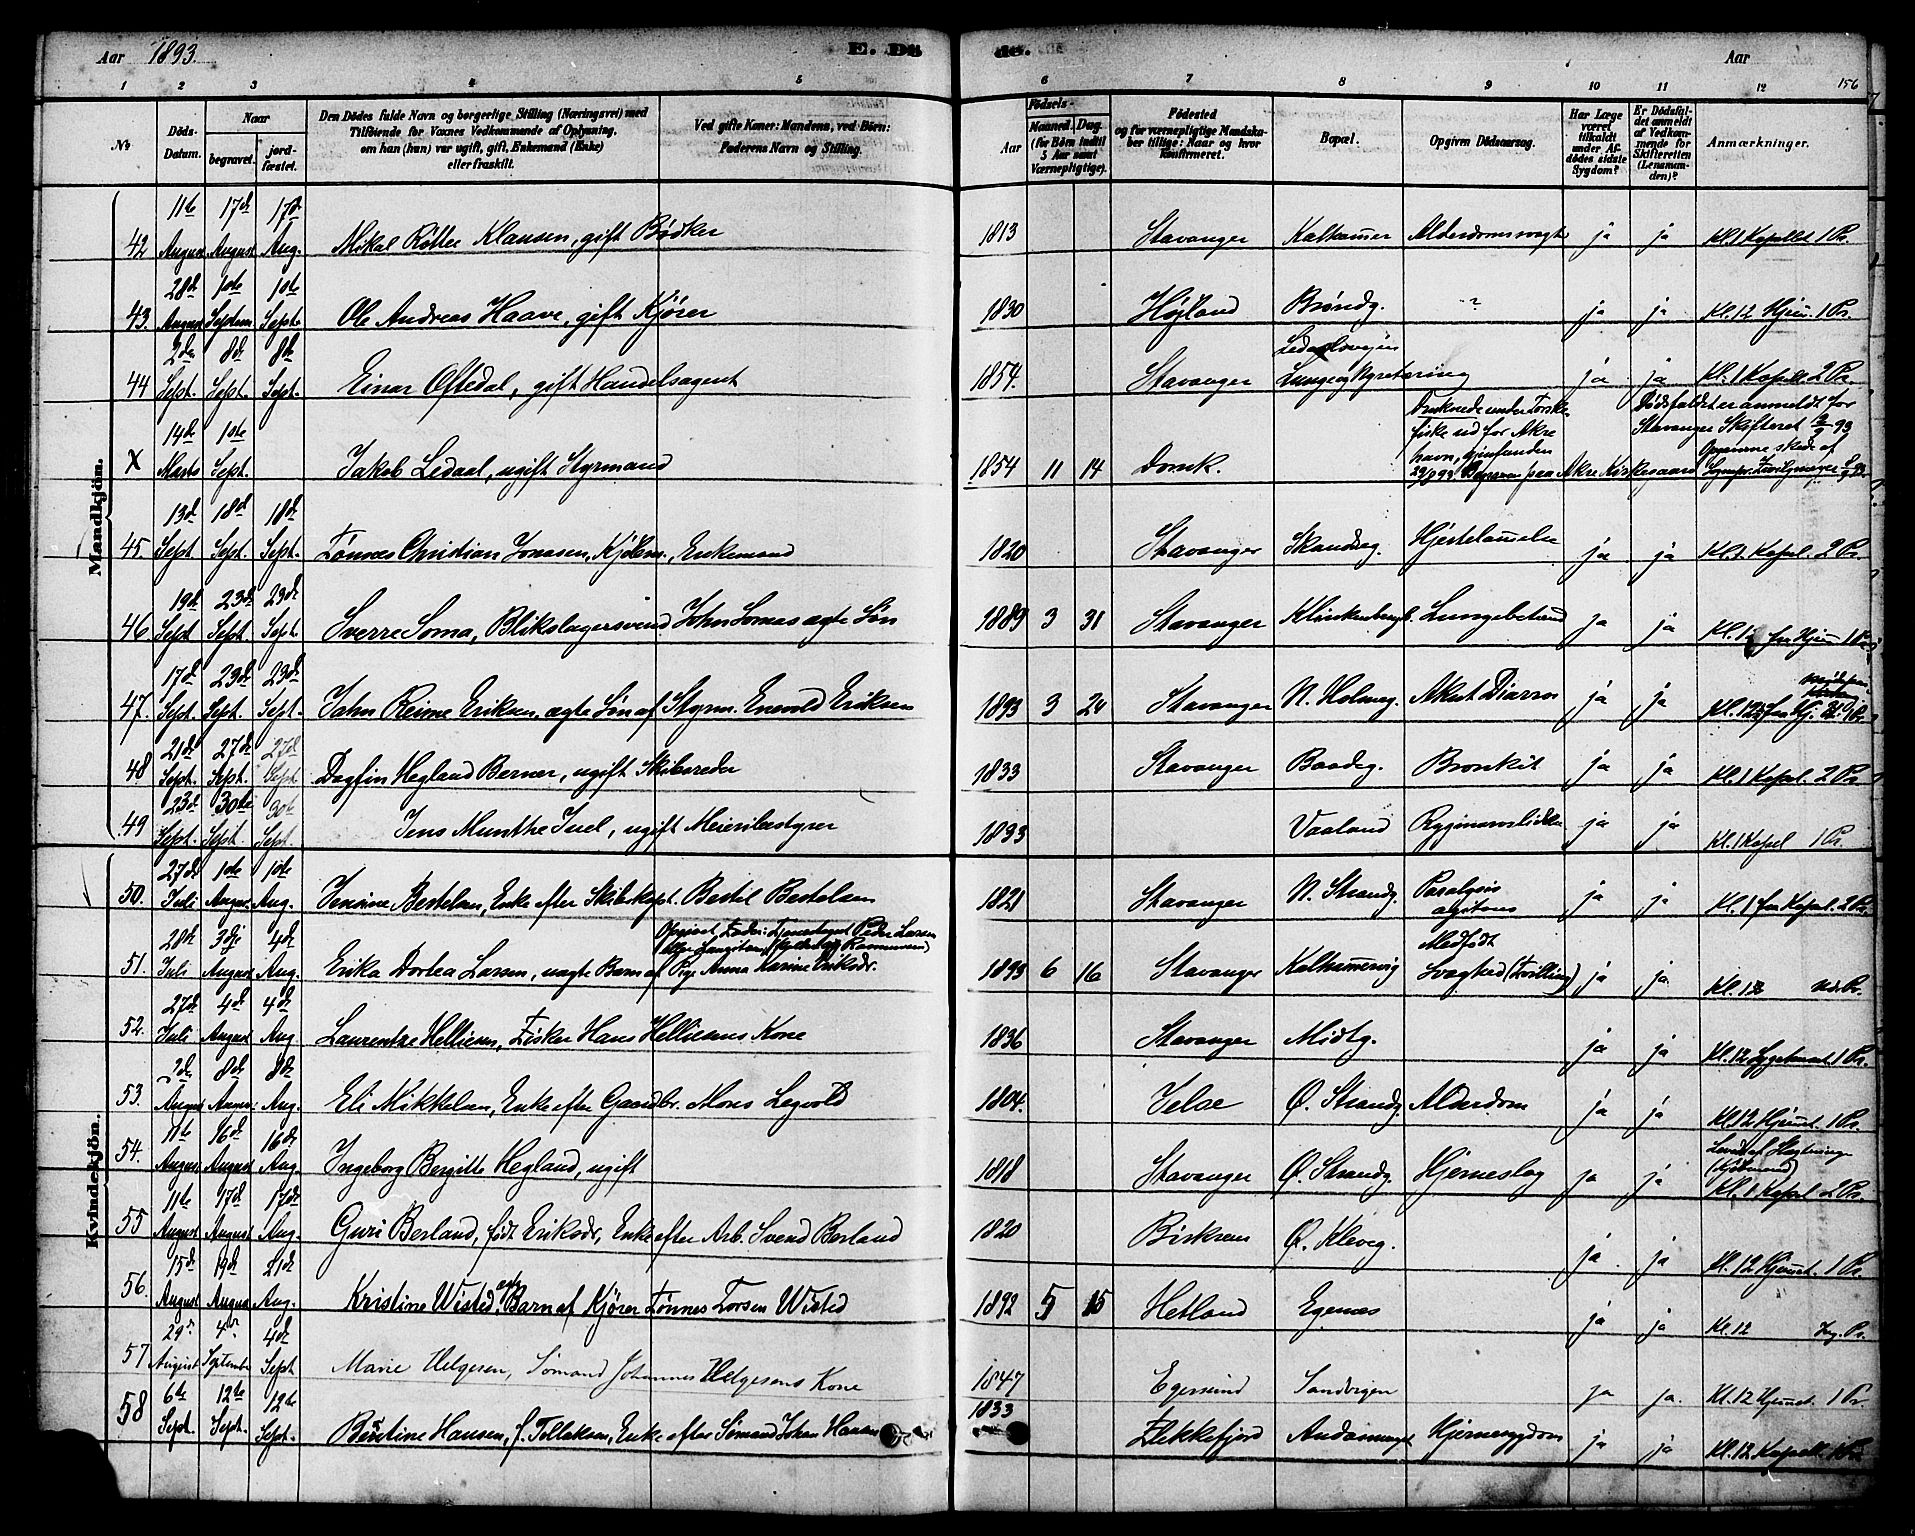 Aar 1893. E. Dø de. Aar 156
1 2 3 4 5 6 7 8 9 10 11 12
No
Døds-Datum.
Naar
begravet. jordfæstet.
Den Dødes fulde Navn og borgerlige Stilling (Næringsvei) med
Tilføiende for Voxnes Vedkommende af Oplysning,
om han (hun) var ugift, gift, Enkemand (Enke)
eller fraskilt.
Ved gifte Koner: Mandens, ved Børn:
Faderens Navn og Stilling.
Fødsels-
Aar Maaned. Dag.
(for Børn indtil
5 Aar samt
Værnepligtige).
Fødested
og for værnepligtige Mandskaber tillige: Naar og hvor
konfirmeret.
Bopæl.
Opgiven Dødsaarsag.
Har Læge
været
tilkaldt
under Afdødes sidste
Sygdom?
Er Dødsfaldet anmeldt
af Vedkommende for
Skifteretten
(Lensmanden)?
Anmærkninger.
Mandkjön.
42 11te August 17de August 17de Aug. Mikal Røttee Klausen, gift Bødker 1813 Stavanger Kalhamer Alderdomssvagh ja ja Kl. 1 Kapellet 1 Pr.
43. 28de August 1ste Septem 1ste Sept. Ole Andreas Haave, gift Kjører 1830 Højland Brøndg. ? ja ja Kl. 12 Hjem. 1 Pr.
44 2den Sept. 8de Sept. 8de Sept. Einar Oftedal, gift Handelsagent 1854. Stavanger Ledaalsvejen Lunge og Nyretæring ja ja Kl. 1 Kapell. 2 Pr.
X 14de Marts 1ste Sept. Jakob Ledaal, ugift Styrmand 1854 11 14 Domk. Druknede under Torskefiske ud for Akrehavn, gjenfunden Begraven paa Akre Kirkegaard Dødsfaldet er anmeldt for Stavanger Skifteret
45. 13de Sept. 18de Sept. 18de Sept. Tønnes Christian Jonasen, Kjøbm., Enkemand 1820 Stavanger Skandseg. Hjertelammelse ja ja Kl. 1. Kapel. 2 Pr.
46 19de Sept. 23de Sept. 23de Sept. Sverre Soma, Blikslagersvend John Somas ægte Søn 1889 3 31 Stavanger Klinkenbergb. Lungebetænd ja ja Kl. 12 fra Hjem 1 Pr.
47. 17de Sept. 23de Sept. 23de Sept. Jahn Reime Eriksen, ægte Søn af Styrm. Enevold Eriksen 1893 3 24 Stavanger N. Holmeg. Akut Diarroe ja ja
48 21de Sept. 27de Sept. 27de Sept Dagfin Hegland Berner, ugift Skibsreder 1833 Stavanger Baadeg. Bronkit ja ja Kl. 1 Kapel. 2 Pr.
49 23de Sept. 30te Sept. 30te Sept. Jens Munthe Juel, ugift Meieribestyrer 1833 Vaaland Rygmarvslidelse ja ja Kl. 1 Kapel 1 Pr.
Kvindekjön.
50. 27de Juli 1ste August 1ste Aug. Jensine Bertelsen, Enke efter Skibskapt. Bertil Bertelsen 1821 Stavanger N. Strandg. Paralysis agitans ja ja Kl. 1 fra Kapel. 2 Pr.
51. 28de Juli 3dje August 4de Aug. Erika Dortea Larsen, uægte Barn af Pige Anna Karine Eriksdr. Opgivet Fader: Peder Larsen 1893 6 16 Stavanger Kalhammervig Medfødt Svaghed (Tvilling) ja ja. Kl. 12 Pr.
52. 27de Juli 4de August 4de Aug. Laurentze Helliesen, Fisker Hans Helliesens Kone 1836 Stavanger Midtg. ja ja Kl. 12 1 Pr.
53. 2den August 8de August 8de Aug. Eli Mikkelsen, Enke efter Gaardbr. Mons Legvold 1804. Jelse Ø. Strandg Alderdom ja ja Kl. 12 Hjemmet. 1 Pr.
54. 11te August 16de August 16de Aug. Ingeborg Bergitte Hegland, ugift 1818 Stavanger Ø. Strandg. Hjerneslag ja ja Kl. 1 Kapel 2 Pr.
55 11te August 17de August 17de Aug. Guri Berland, født Eriksdr, Enke efter Arb. Svend Berland 1820 Birkrem Ø. Kleveg. ja ja Kl. 12 Hjemmet. 1 Pr.
56. 15de August 19de August 21de Aug. Kristine Wisted, ægte Barn af Kjører Tønnes Torsen Wisted 1892 5 15 Hetland Egenæs ja ja Kl. 12 Ing. Pr.
57 29de August 4de September 4de Sept Marie Helgesen, Sømand Johannes Helgesens Kone 1847 Egersund Sandvigen ja ja. Kl. 12 Hjemmet. 1 Pr.
58 6te Sept. 12te Sept. 12te Sept. Bertine Hansen, f. Tollaksen, Enke efter Sømand Johan Hansen 1833 Flekkefjord Hjernesygdom ja ja Kl. 12 Kapell. 1 Pr.